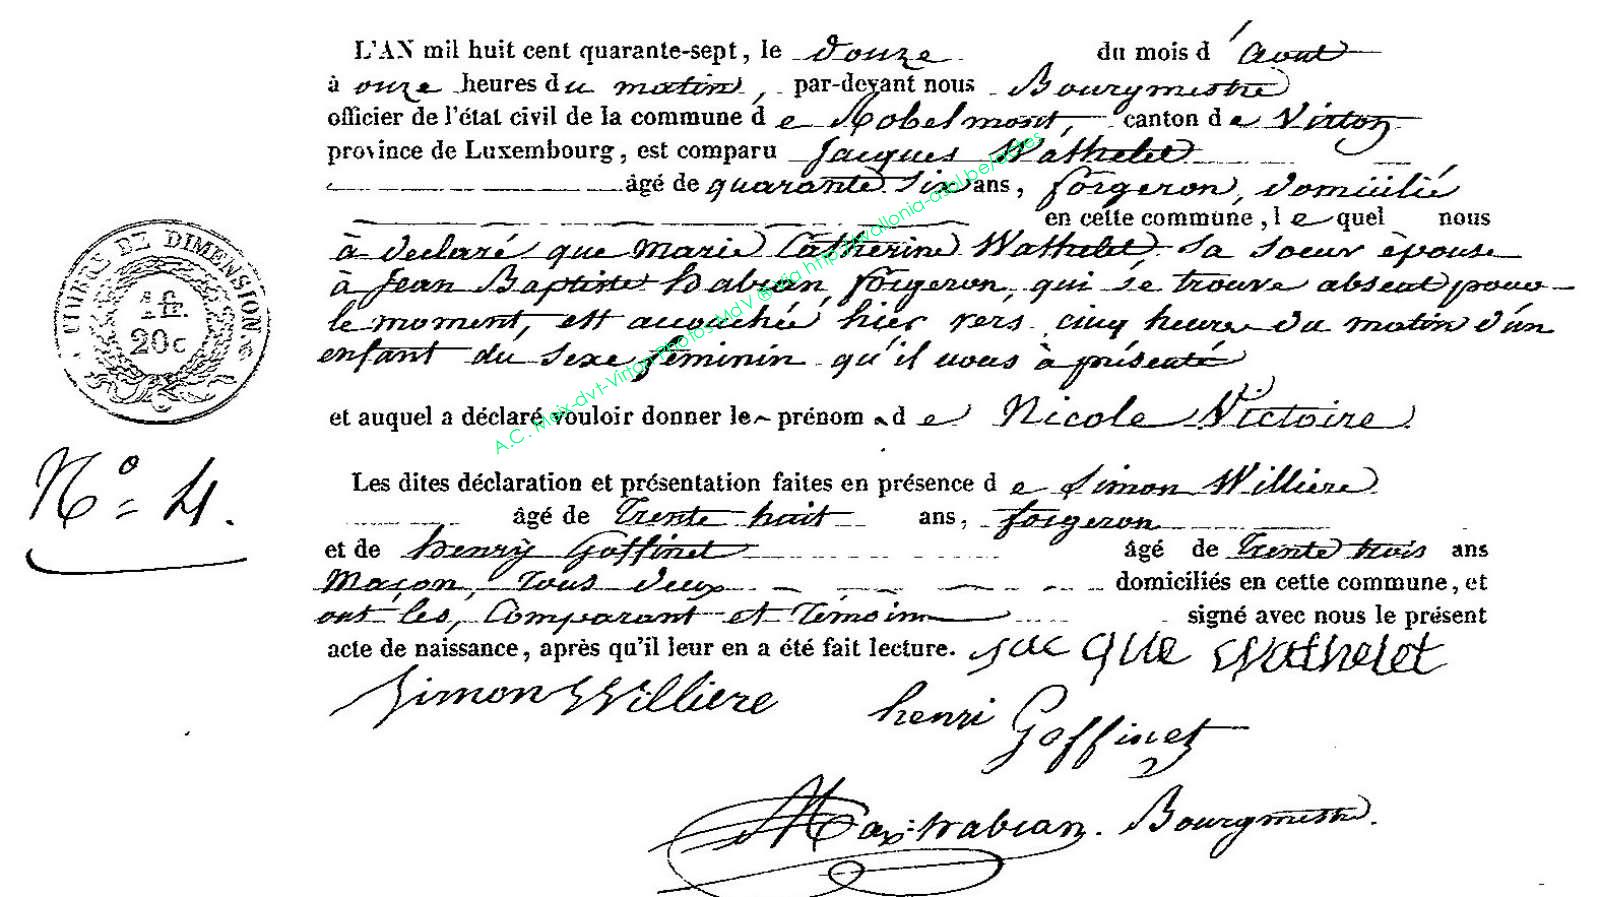 L'AN mil huit cent quarante-sept, le douze du mois d'Aout
à onze heures du matin, par-devant nous Bourgmestre
officier de l'état civil de la commune de Robelmont, canton de Virton
province de Luxembourg, est comparu Jacques Wathelet
âgé de quarante six ans, forgeron, domicilié
en cette commune, lequel nous
à declaré que Marie Catherine Wathelet, sa soeur épouse
à Jean Baptiste habran, forgeron, qui se trouve absent pour
le moment, est accouchée hier vers cinq heure du matin d'un
enfant du sexe feminin qu'il nous à présenté
et auquel a déclaré vouloir donner le prénom de Nicole Victoire.
TIMBRE DE DIMENSION
1 fr.
20 c
N° = 4.
Les dites déclaration et présentation faites en présence de Simon Williere
âgé de Trente huit ans, forgeron
et de henry Goffinet âgé de Trente trois ans
Maçon, Tous deux domiciliés en cette commune, et
ont les, Comparant et Témoin signé avec nous le présent
acte de naissance, après qu'il leur en a été fait lecture. jacque Wathelet
Simon Williere henri Goffinet
habran. Bourgmestre.
A.C. Meix-dvt-Virton Photos MdV ® via http://wallonia-asbl.be/actes